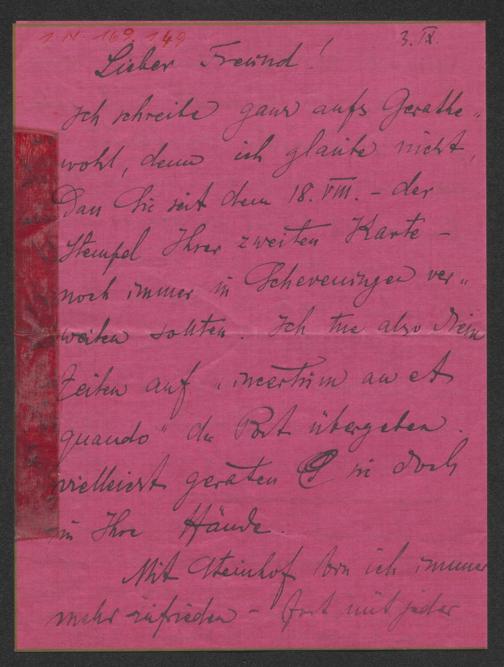 I. N. 169.149
3. IX.
Lieber Freund!
Ich schreibe ganz aufs Gerathe„
wohl, denn ich glaube nicht,
Dass Sie seit dem 18. VIII. – der
Stempel Ihrer zweiten Karte –
noch immer in Scheveningen ver„
weilen sollten. Ich tue also diese
Zeilen auf „incertum an et
quando“ der Post übergeben.
Vielleicht geraten sie doch
in Ihre Hände.
Mit Steinhof bin ich immer
mehr zufrieden – fast mit jeder